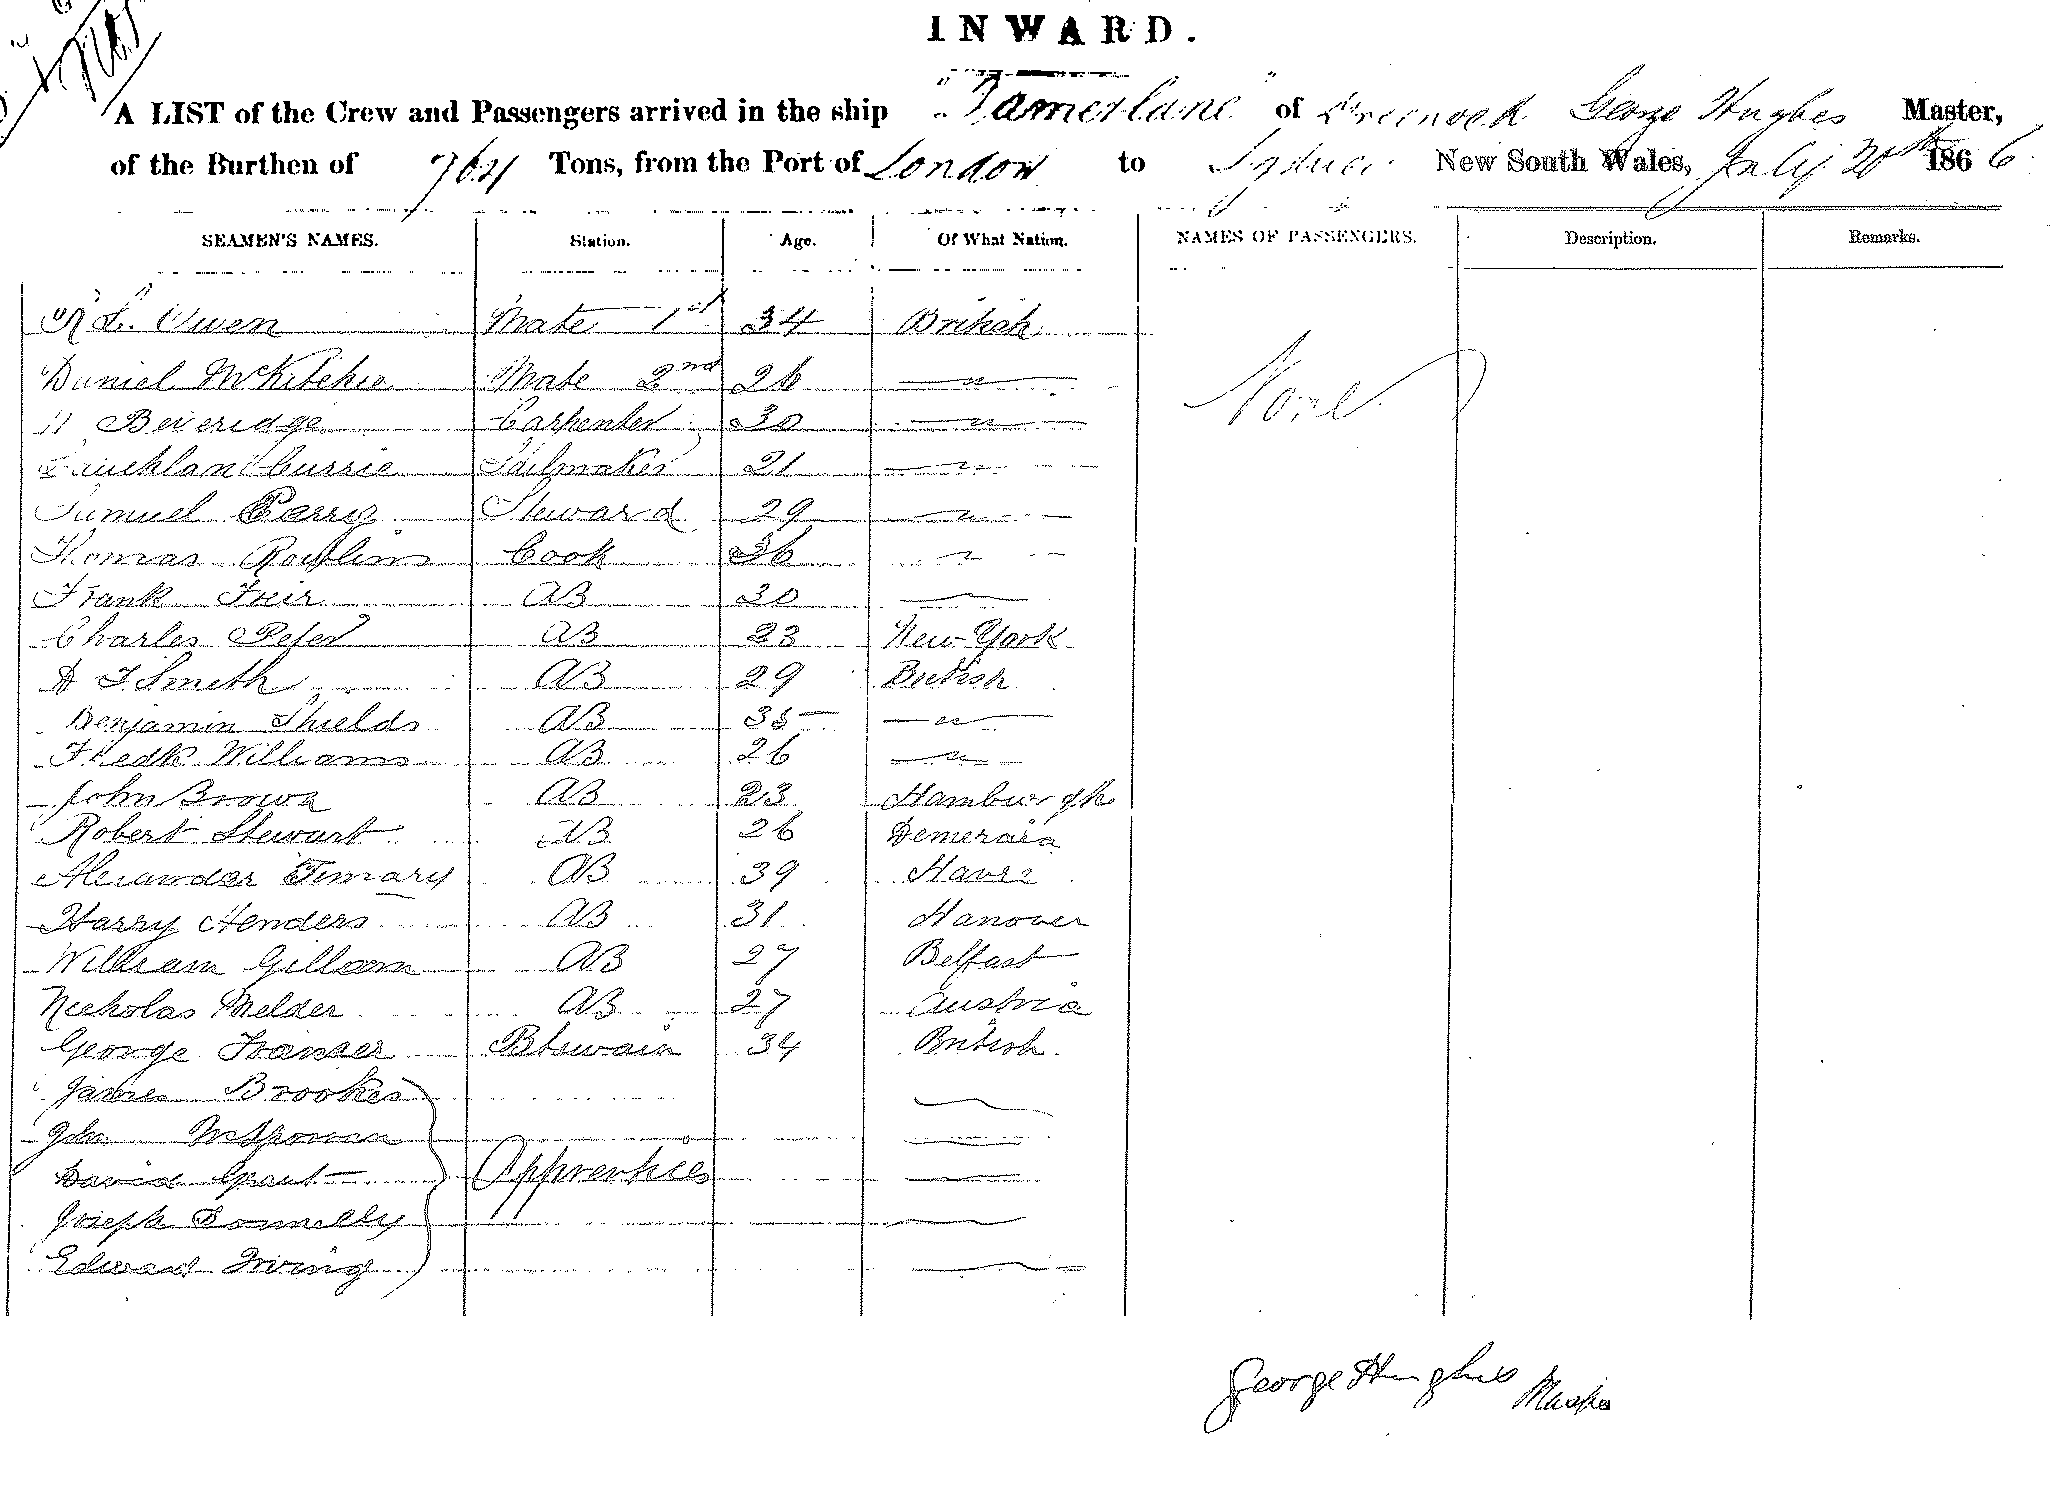 INWARD.
A LIST of the Crew and Passengers arrived in the ship "Tamerlane" of Greenock George Hughes Master,
of the Burthen of Tons, from the Port of London to Sydney New South Wales, July 20th 1866.
SEAMEN'S NAMES. Station. Age. Of What Nation. NAMES OF PASSENGERS. Description. Remarks.
Owen Mate 1st 34 British
Daniel McKitchie Mate 2nd 26 — " —
Beveridge Carpenter 30 — " —
None
Lauchlan Currie Sailmaker 21 — " —
Samuel Perry Steward 29 — " —
Thomas Cook 36 — " —
Frank Freir AB 30 —
Charles Peter AB 23 New York
Smith AB 29 British
Benjamin Shields AB 35 — " —
Fredk Williams AB 26 — " —
John Brown AB 23 Hamburgh
Robert Stewart AB 26 Demerara
Alexander AB 39 Havre
Harry Henders AB 31 Hanover
William Gillam AB 27 Belfast
Nicholas Melder AB 27 Austria
George Btswain 34 British
James Brookes —
John —
David Grant Apprentices —
Joseph Donnelly —
Edward Irving —
George Hughes Master